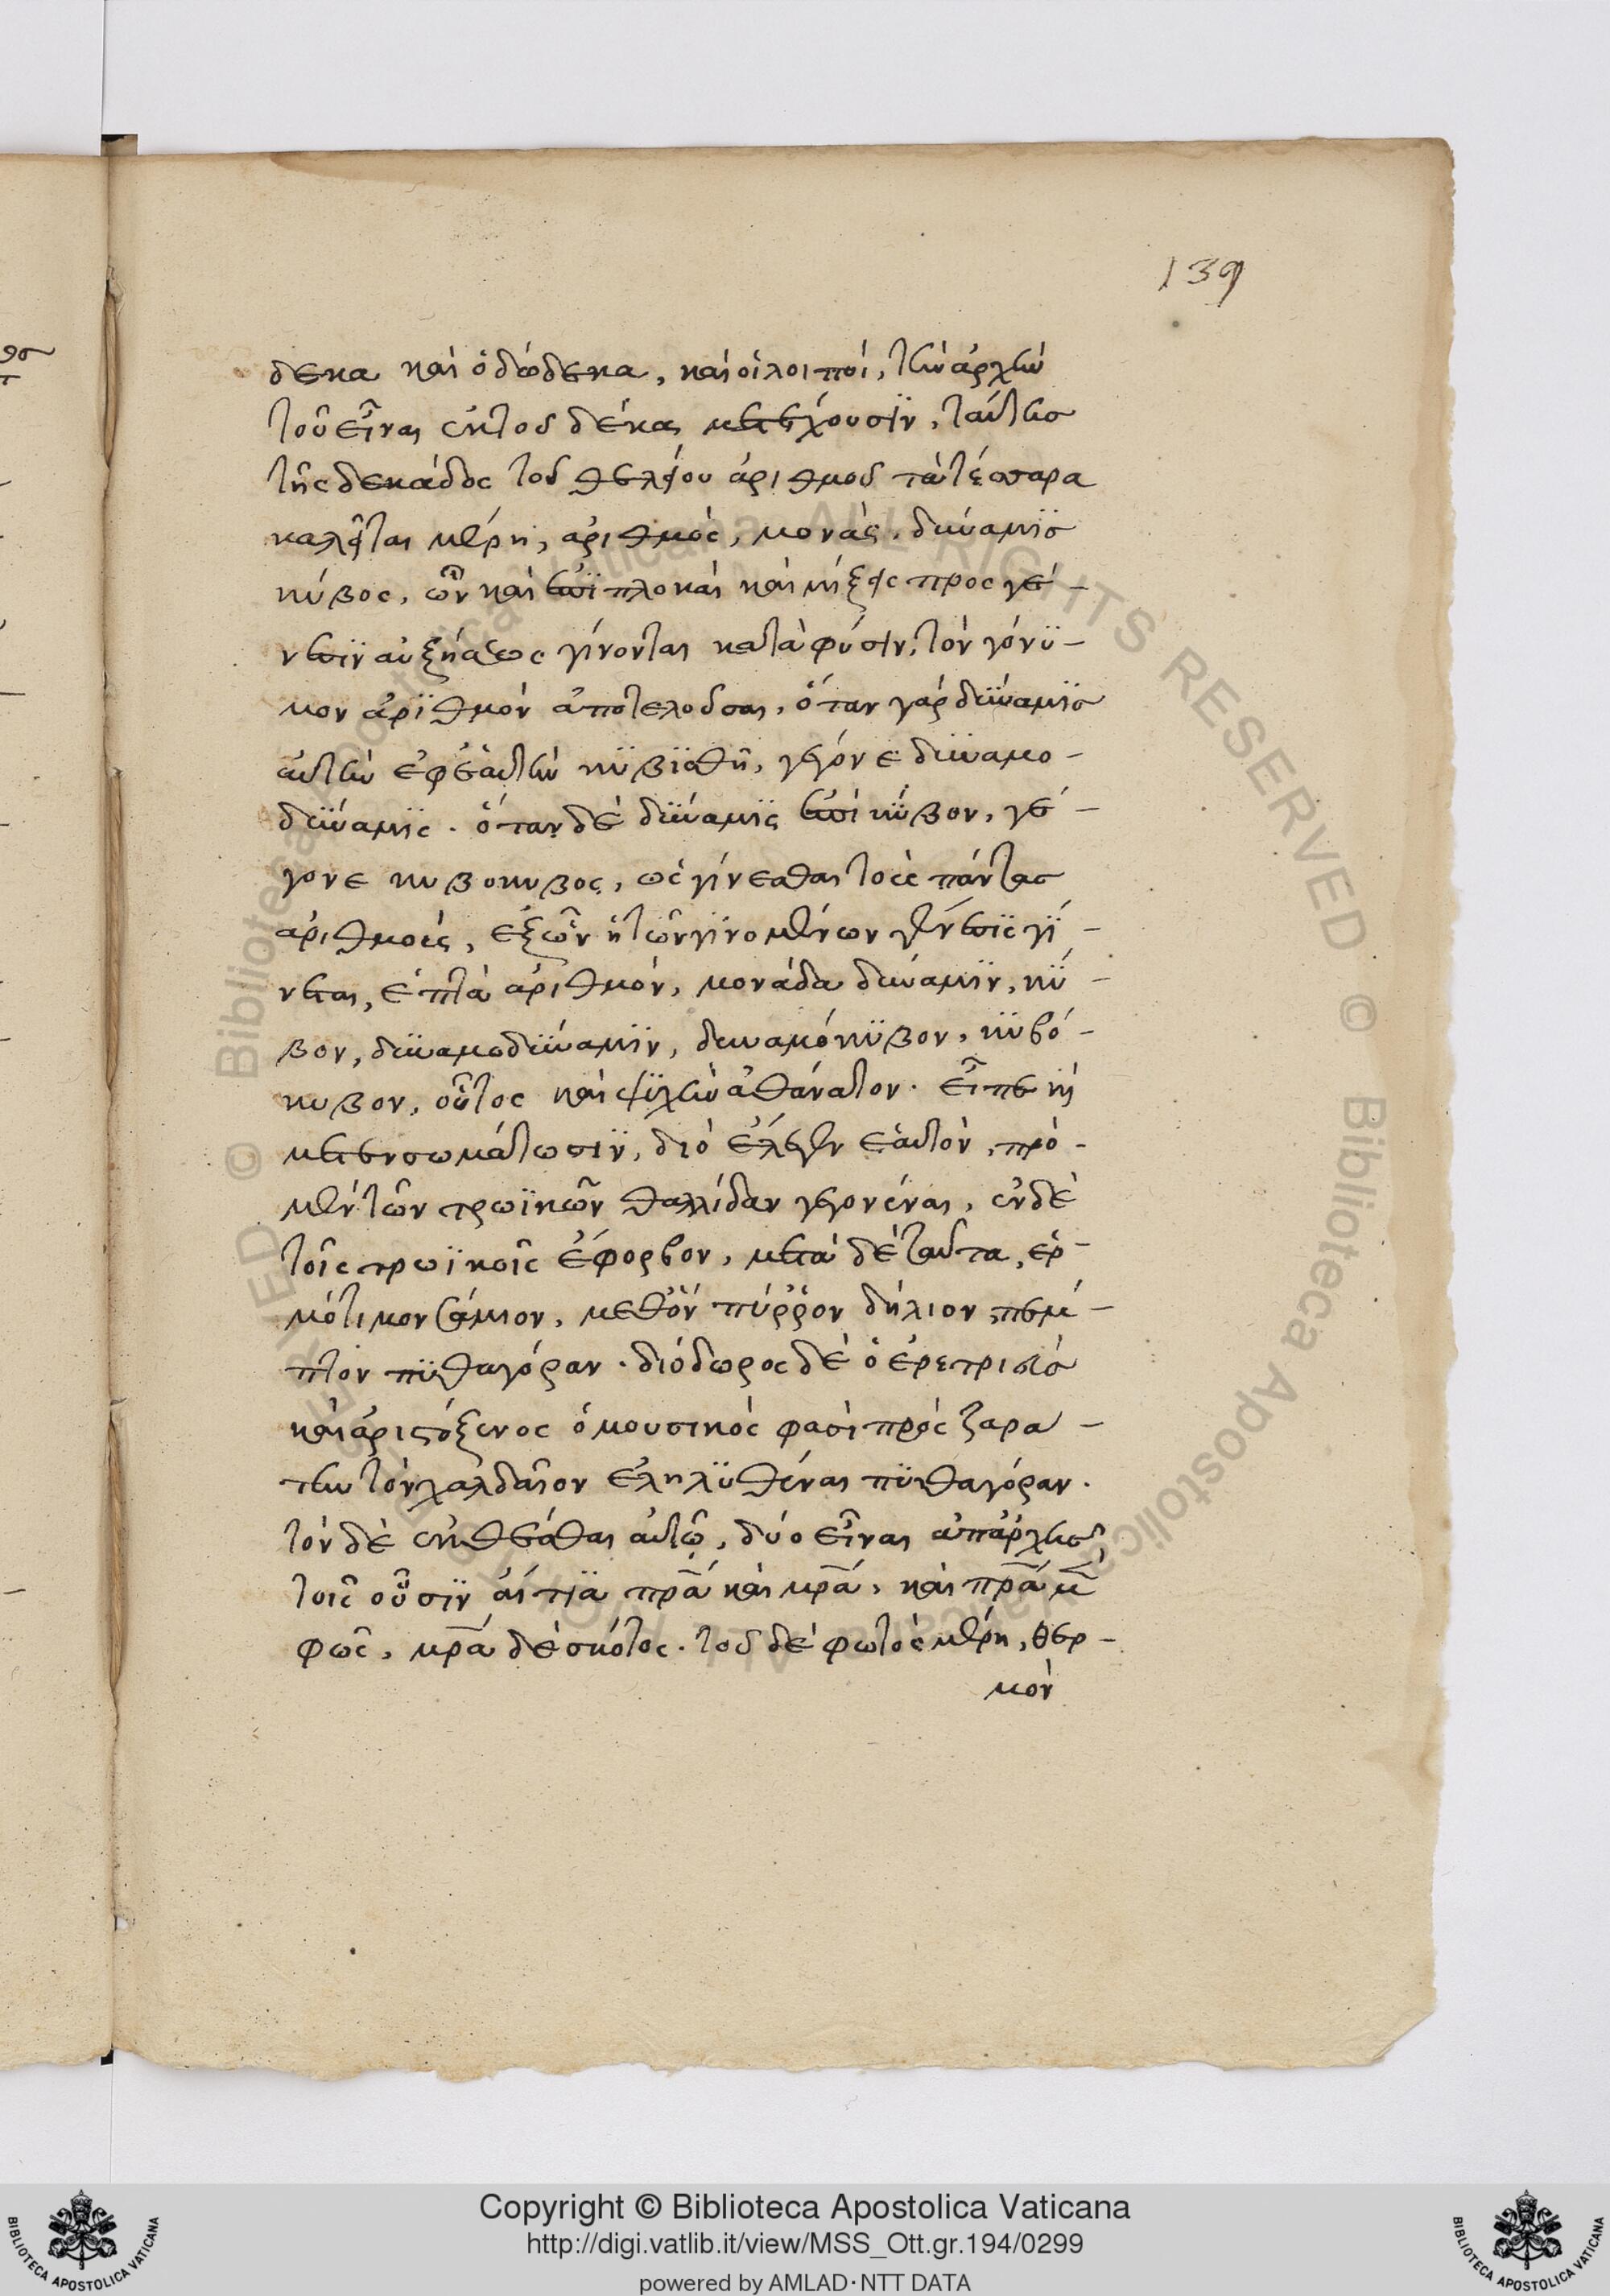 139
δεκα καὶ ὁ δώδεκα, καὶ οἱ λοιποί, τὴν ἀρχὴν
τοῦ εἶναι ἐκ τοῦ δέκα μετέχουσϊν, ταύτης
τῆς δεκάδος τοῦ τελείου ἀριθμοῦ τὰ τέσσαρα
καλεῖται μέρη, ἀριθμὸς, μονὰς, δύναμϊς
κύβος, ὧν καὶ ἐπϊπλοκαὶ καὶ μίξεις προς γέ-
νεσϊν αὐξήσεως γίνονται κατὰ φύσιν, τὸν γόνϋ-
μον ἀρϊθμὸν ἀποτελοῦσαι, ὅταν γὰρ δϋναμϊς
αὐτὴν ἐφ ἑαυτὴν κϋβϊσθῆ, γέγόνε δϋναμο-
δϋναμϊς. ὅταν δὲ δϋναμϊς ἐπὶ κϋβον, γέ-
γονε κυβοκυβος, ὡς γίνεσθαι τοὺς πάντας
ἀριθμοὺς, ἐξ ὧν ἡ τῶν γϊνομένων γένεσϊς γί-
νεται, ἑπτὰ ἀριθμόν, μονάδα δύναμϊν, κϋ-
βον, δϋναμοδϋναμϊν, δυναμόκϋβον, κϋβό-
κυβον, οὗτος καὶ ψϋχὴν ἀθάνατον. εἶπε κὴ
μετενσωμάτωσϊν, διὸ ἔλεγεν ἑαυτὸν, πρὸ-
μὲν τῶν τρωϊκῶν θαλλίδαν γεγονέναι, ἐν δὲ
τοῖς τρωϊκοῖς ἔφορβον, μετὰ δὲ ταῦτα, ἑρ-
μότιμον σάμιον, μεθ ὃν πύῤῥον δήλιον, πέμ-
πτον πϋθαγόραν. διόδωρος δὲ ὁ ἐρετριεὺς
καὶ ἀριστόξενος ὁ μουσικὸς φασὶ πρὸς ζαρα-
την τὸν χαλδαῖον ἐληλϋθέναι πϋθαγόραν.
τὸν δὲ ἐκθέσθαι αὐτῷ, δύο εἶναι ἀπἀρχῆς
τοῖς οὖσϊν αἴτϊα πρᾶ καὶ μρᾶ, καὶ πρᾶ μ
φῶς, μρᾶ δὲ σκότος. τοῦ δὲ φωτὸς μέρη, θερ-
μὸν
Copyright © Biblioteca Apostolica Vaticana
http://digi.vatlib.it/view/MSS_Ott.gr.194/0299
powered by AMLAD·NTT DATA